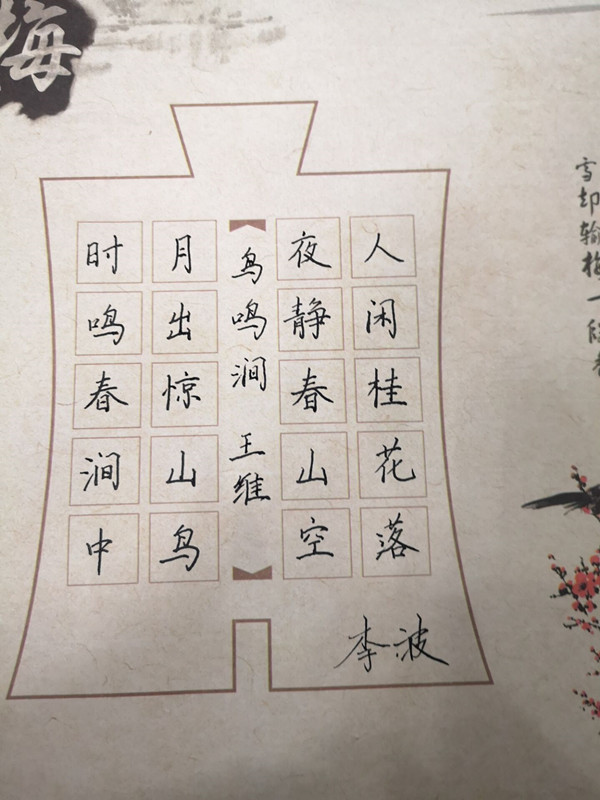 梅
雪却输梅一段香
人闲桂花落
夜静春山空
鸟鸣涧 王维
月出惊山鸟
时鸣春涧中
李波